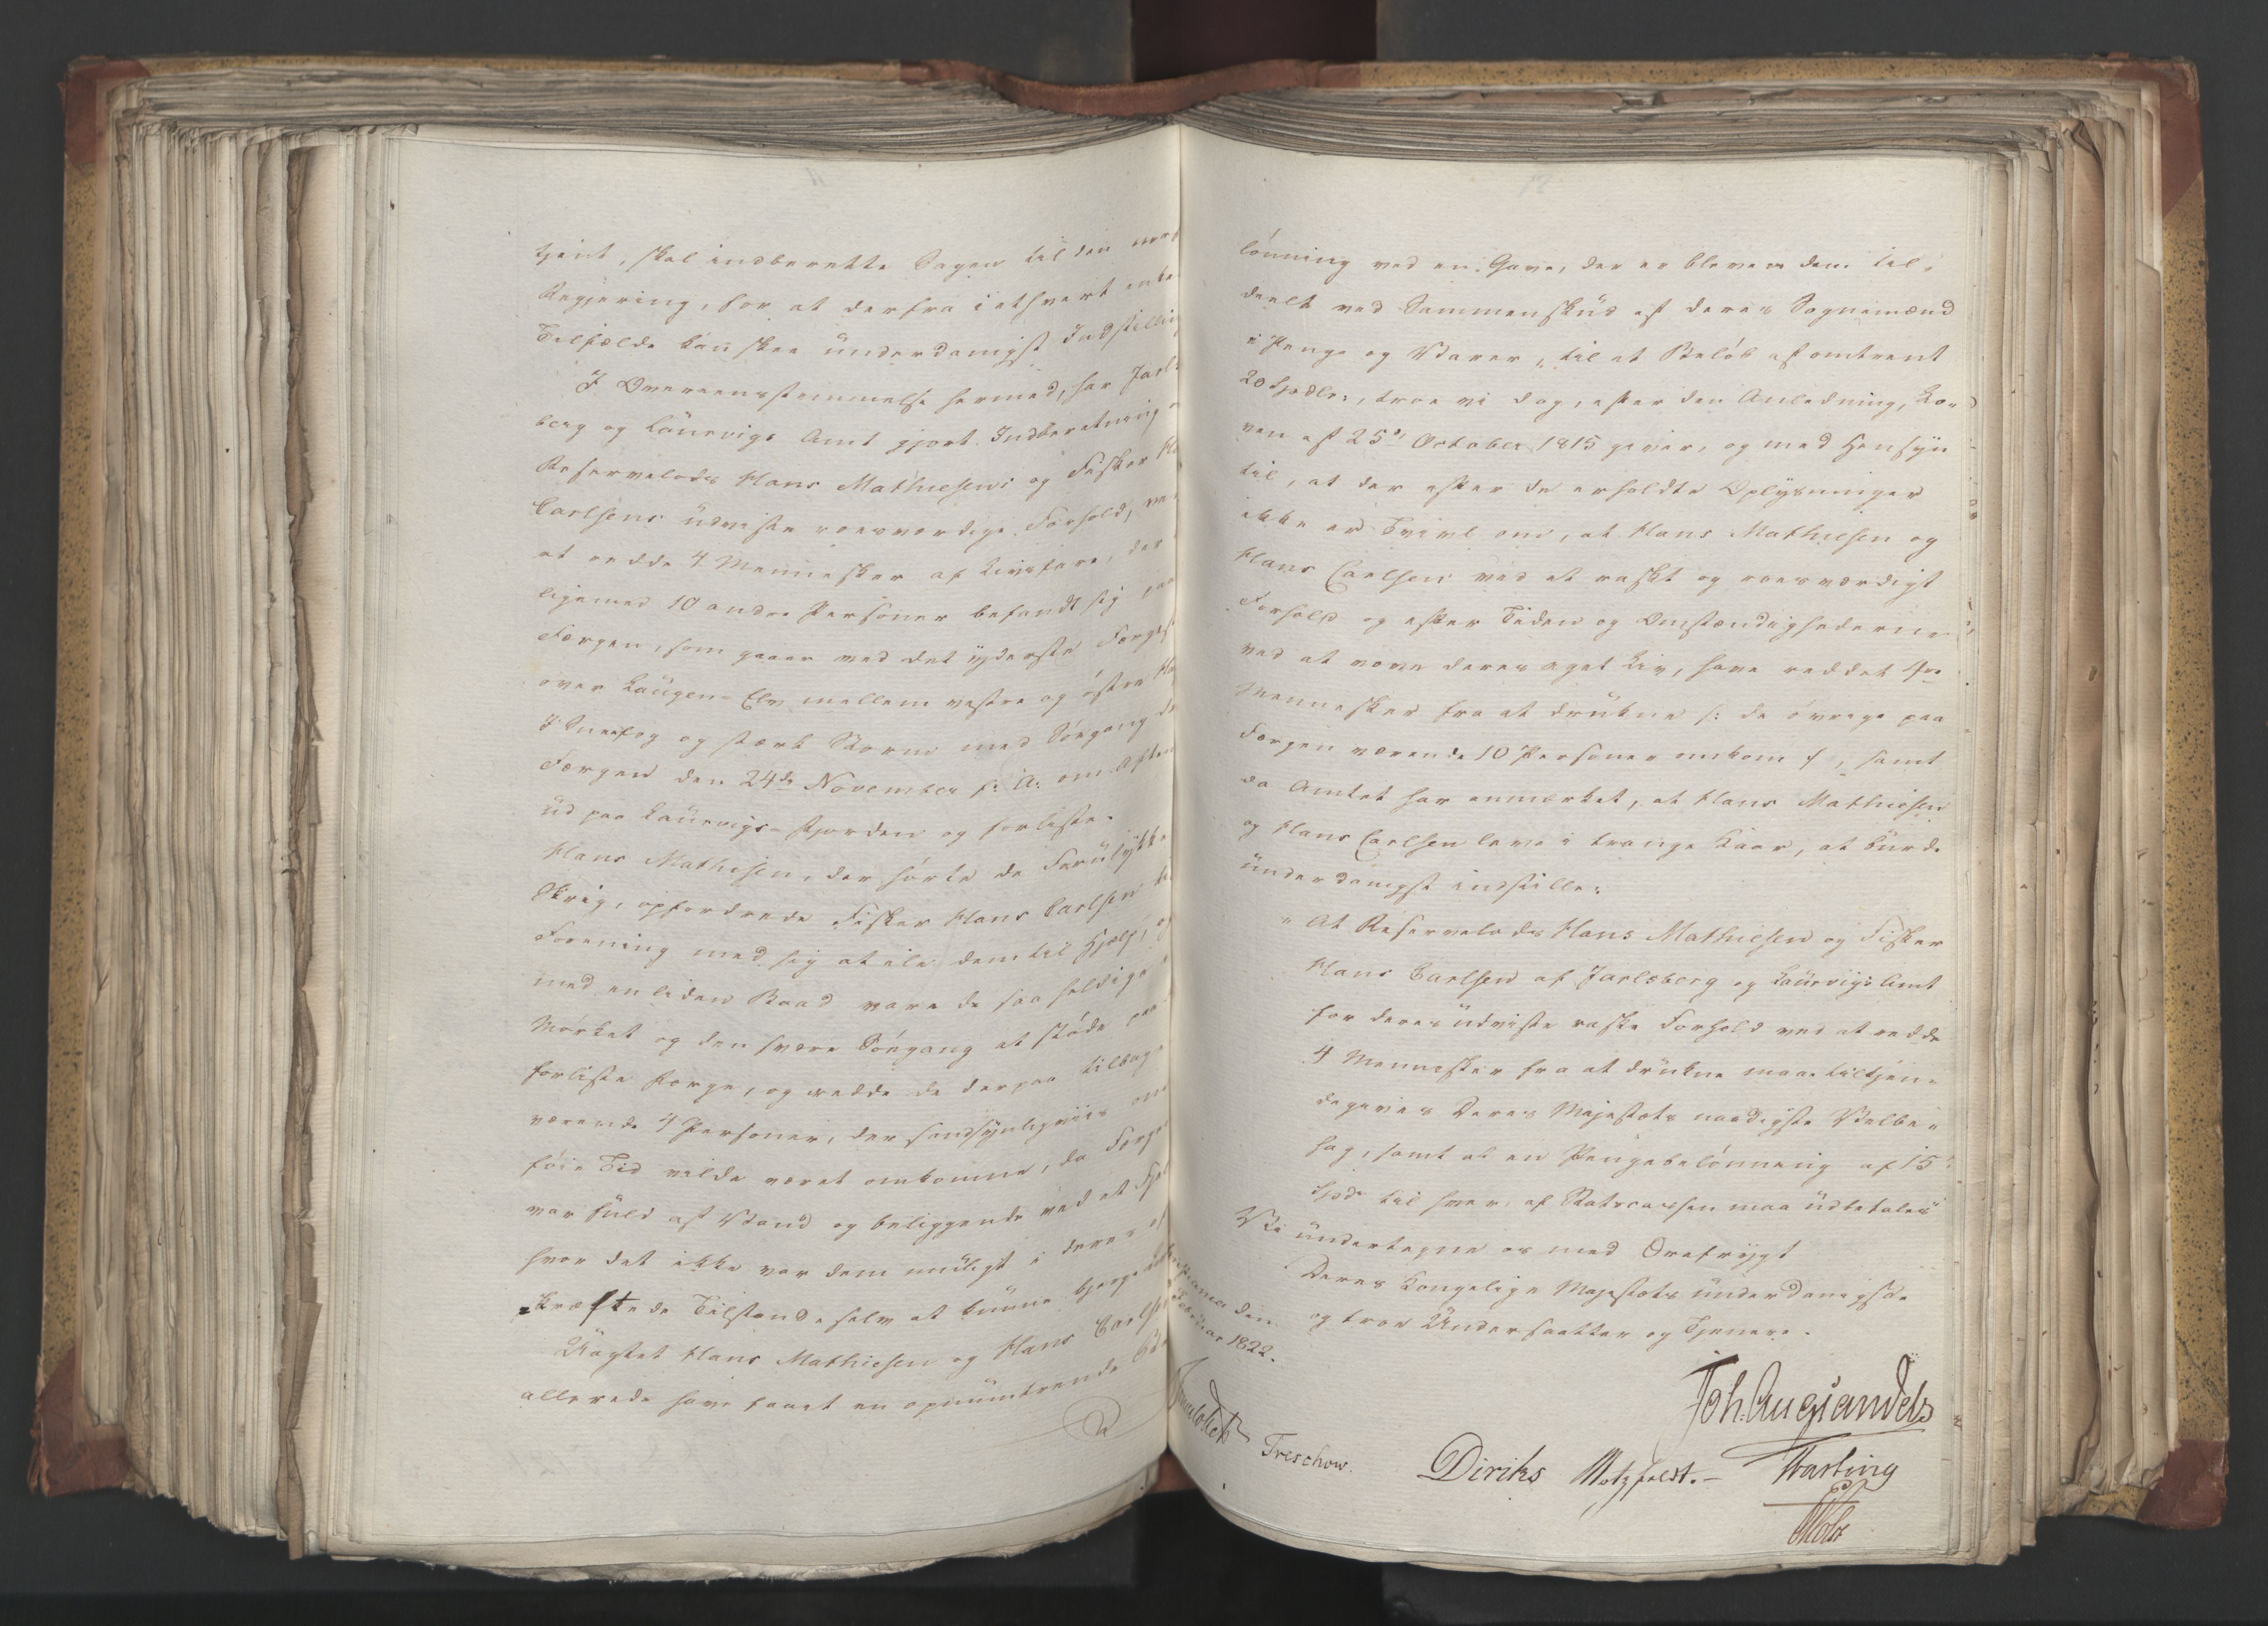 tjent, skal indberette Sagen til den
Regjering, for at derfra i ethvert enke
Tilfælde kan skee underdanigst Indstilling
I Overeensstemmelse hermed, har Jarls-
berg og Laurvigs Amt gjort Indberetning o
Reservelods Hans Mathiesens og Fisker Ha
Carlsens udviste roesværdige Forhold, ve
at redde 4 Mennesker af Livsfare, der
ligemed 10 andre Personer befandt sig paa
Færgen, som gaaer ved det yderste Færges
over Laugen-Elv mellem vestre og östre Ha
I Sneefog og stærk Storm med Söegang dr
Færgen den 24de November f: A: om Aften
ud paa Laurvigs-Fjorden og forliste.
Hans Mathiesen, der hörte de Forulykke
Skrig, opfordrede Fisker Hans Carlsen
Forening med sig at ile dem til Hjælp, og
med en liden Baad vare de saa heldige
Mörket og den svære Söegang at stöde paa
forliste Færge, og redde de derpaa tilbage
værende 4 Personer, der sandsynligviis om
föie Tid vilde været omkomne, da Færge
var fuld af Vand og beliggende ved et Fje
hvor det ikke var dem muligt i deres af
kræftede Tilstand selv at kunne bjerge
Uagtet Hans Mathiesen og Hans Carlse
allerede have faaet en opmuntrende Be
lönning ved en Gave, der er bleven dem til-
deelt ved Sammenskud af deres Sognemænd
i Penge og Varer, til et Belöb af omtrent
20 Spdlr:, troe vi dog, efter den Anledning, Lo-
ven af 25de October 1815 giver, og med Hensyn
til, at der efter de erholdte Oplysninger
ikke er Tvivl om, at Hans Mathiesen og
Hans Carlsen ved et raskt og roesværdigt
Forhold og efter Tiden og Omstændighederne
ved at vove deres eget Liv, have reddet 4re
Mennesker fra at drukne /: de övrige paa
Færgen værende 10 Personer omkom :/, samt
da Amtet har anmærket, at Hans Mathiesen
og Hans Carlsen leve i trange Kaar, at burde
underdanigst indstille:
"At Reservelods Hans Mathiesen og Fisker
Hans Carlsen af Jarlsberg og Laurvigs Amt
for deres udviste raske Forhold ved at redde
4 Mennesker fra at drukne maae tilkjen-
degives Deres Majestæts naadigste Velbe-
hag, samt at en Pengebelönning af 15
Spd. til hver af Statscassen maa udbetales"
Vi undertegne os med Ærefrygt
Deres Kongelige Majestæts underdanigste
og troe Undersaatter og Tjenere.
den
1822.
Joh. Aug Sandels
Treschow. Diriks Motzfeldt. - Fasting
Holst